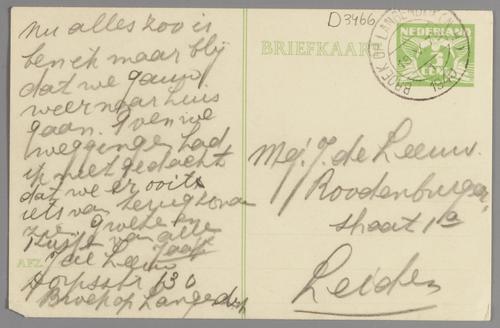 D3466
NEDERLAND
BRIEFKAART
3
CENT
BROEK OP LANGENDIJK
nu alles zoo is
ben ik maar blij
dat we gauw
weer naar huis
gaan. Toen we
weggingen had
ik niet gedacht
dat we er ooit
iets van terug zouden
zien. Groeten en
kusjes van alle
Jaap
AFZ.
de Leeuw
Dorpsstr 130
Broek op Langendijk
Mej. J. de Leeuw.
Roodenburger
straat 1a
Leiden